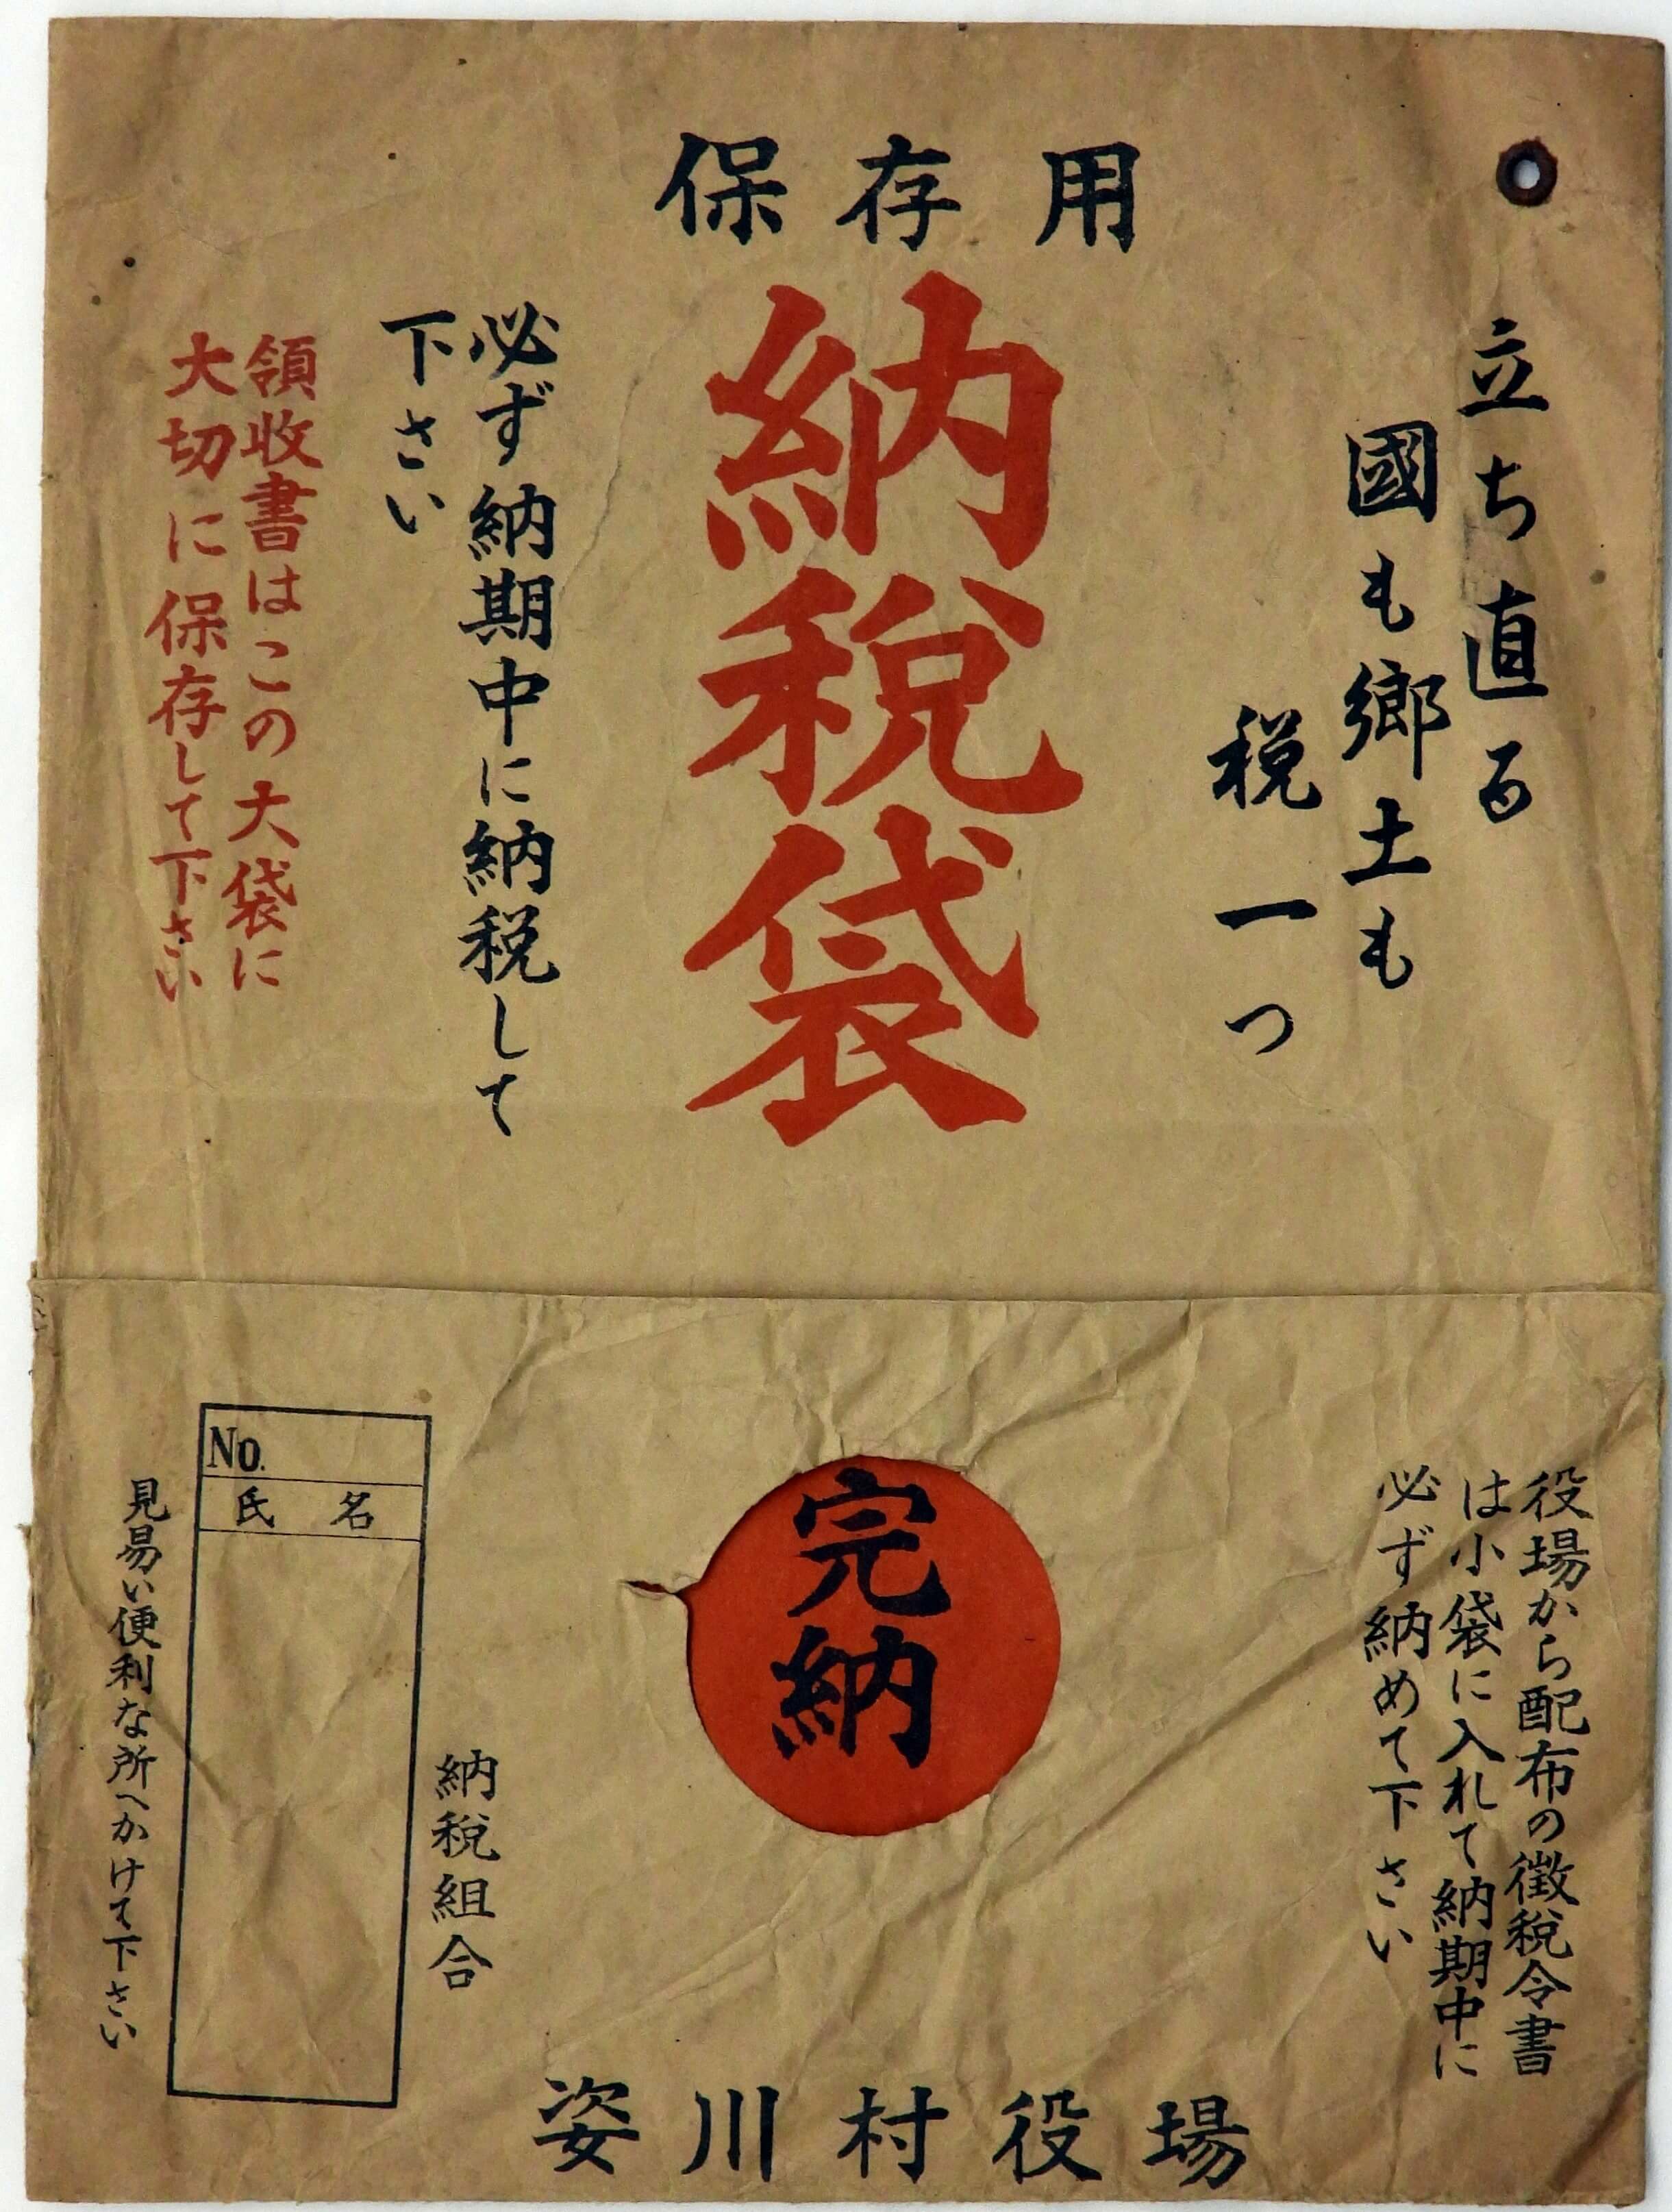 保存用
立ち直る
國も郷土も
税一つ
納税袋
必ず納期中に納税して
下さい
領收書はこの大袋に
大切に保存して下さい
役場から配布の徴税令書
は小袋に入れて納期中に
必ず納めて下さい
完納
納税組合
No.
氏名
見易い便利な所へかけて下さい
姿川村役場